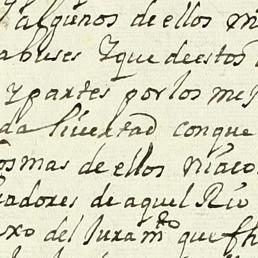 y algunos de ellos
abuses y que deestos
y partes por los
da livertad conque
mas de ellos
adores de aquel Rio
del Juram.to que